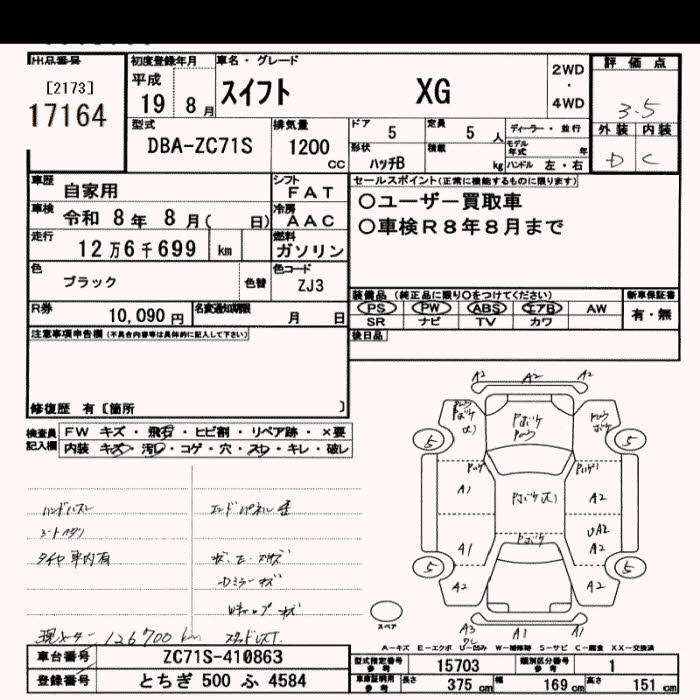 出品番号
[2173]
17164
初度登録年月
平成
19 8 月
車名・グレード
スイフト XG
2WD
・
4WD
評価点
3.5
外装 内装
D C
型式
DBA-ZC71S
排気量
1200
CC
ドア
5
定員
5 人
ディーラー・並行
形状
ハッチB
積載
kg
モデル年式
年
ハンドル 左・右
車歴
自家用
シフト
FAT
車検
令和 8年 8月( 日)
冷房
AAC
走行
12万6千699 km
燃料
ガソリン
色
ブラック
色替
色コード
ZJ3
R券
10,090 円
名変通知期限
月 日
セールスポイント(正常に機能するものに限ります)
○ユーザー買取車
○車検R8年8月まで
装備品(純正品に限り○をつけてください)
PS PW ABS エアB AW
SR ナビ TV カワ
新車保証書
有・無
後日品
注意事項申告欄(不具合内容等は具体的に記入して下さい)
修復歴 有〔箇所 〕
検査員
記入欄
FW キズ・飛石・ヒビ割・リペア跡・×要
内装 キズ・汚れ・コゲ・穴・スレ・キレ・破レ
ハンドルスレ
シートヘタリ
タイヤ車内有
エンドパネル歪
Dミラーキズ
Wキャップキズ
現メーター 126700 km
A2 A2 A2
Pボケ
5 5
A1 A2
A1 UA2
A2
5 5
A2 A2
A3 A1 A1
スペア
A-キズ E-エクボ U-凹み W-補修跡 S-サビ C-腐食 XX-交換済
車台番号
ZC71S-410863
登録番号
とちぎ 500 ふ 4584
型式指定番号
参考
15703
類別区分番号
参考
1
車庫証明用
参考
長さ 375 cm
幅 169 cm
高さ 151 cm